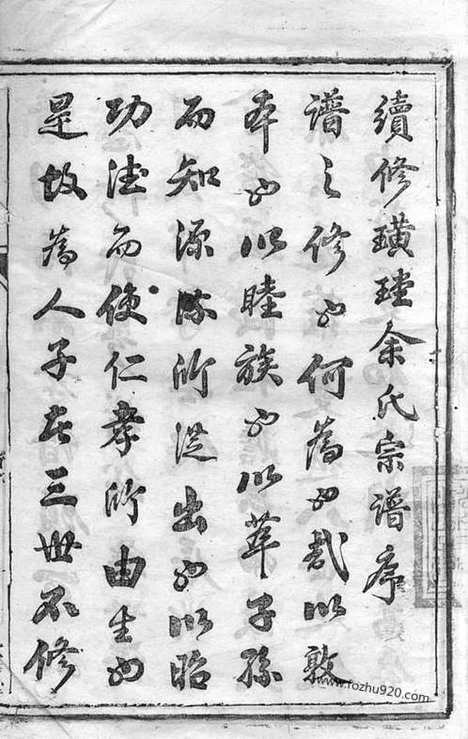 續修璜余氏宗譜序
譜之修也何為也哉以敦
本也以睦族也以萃子孫
而知源流所從出也以昭
功德而使仁孝所由生也
是故為人子者三世不修
www.fozhu920.com